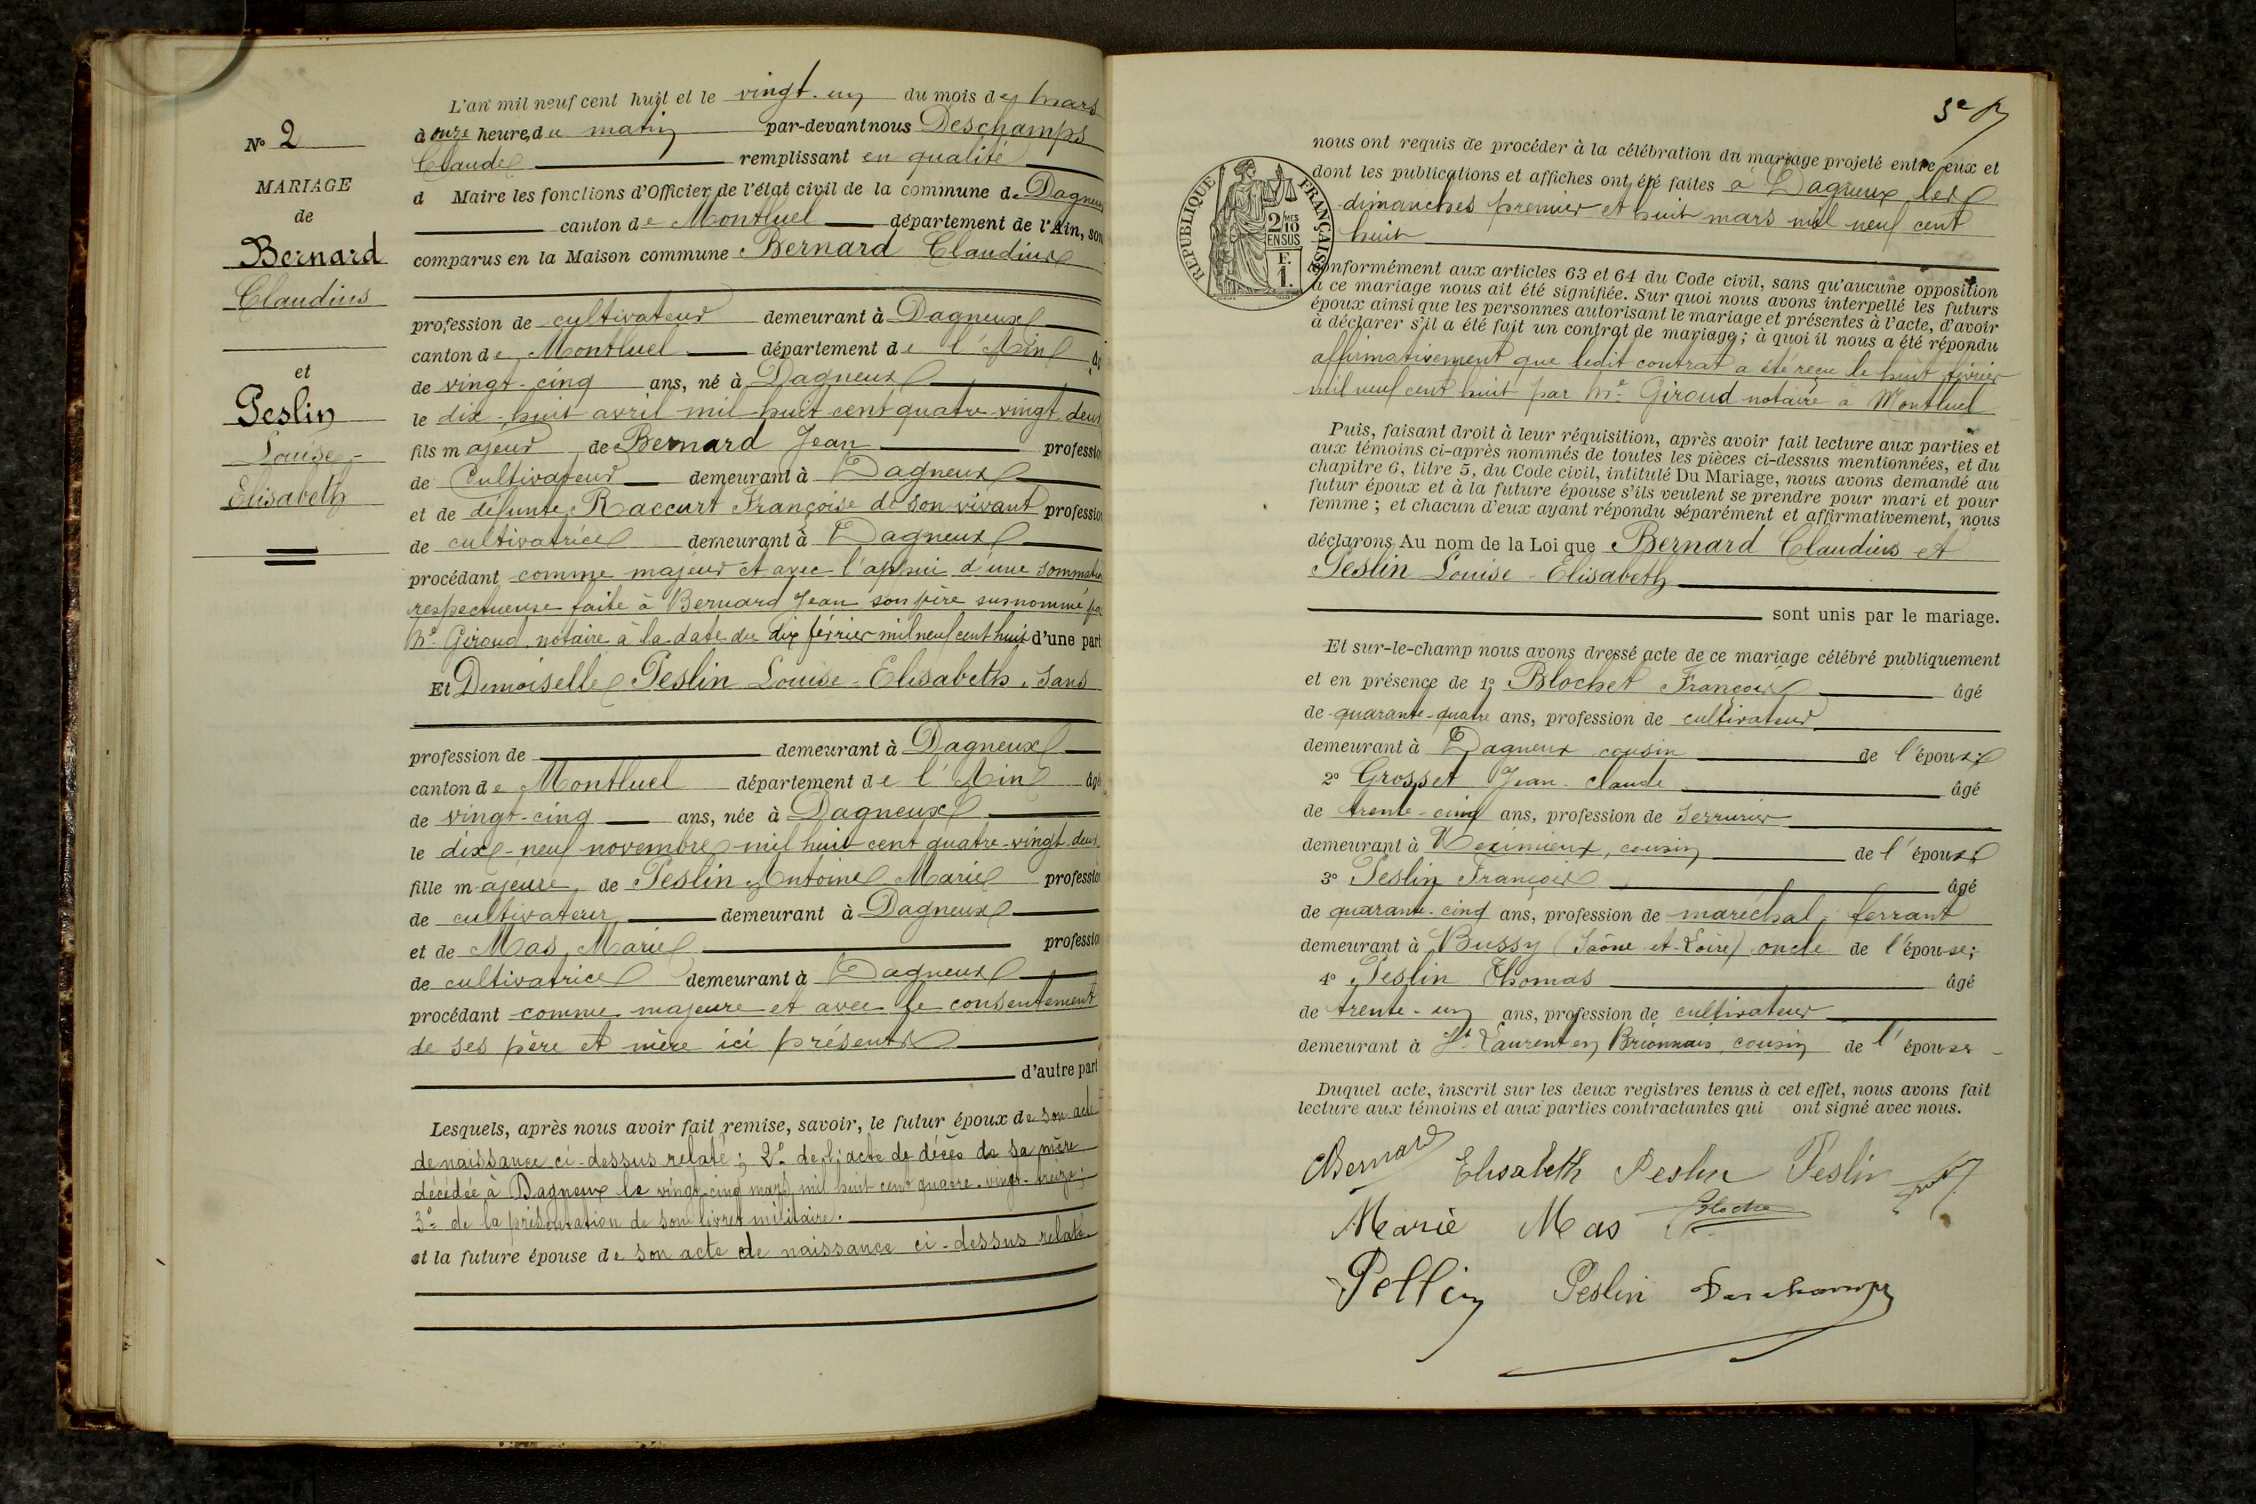 L'an mil neuf cent huit et le vingt-un du mois de Mars
à onze heures du matin par-devant nous Deschamps
Claude remplissant en qualité
d Maire les fonctions d'Officier de l'état civil de la commune de Dagneux
canton de Montluel département de l'Ain, son
comparus en la Maison commune Bernard Claudius
profession de cultivateur demeurant à Dagneux
canton de Montluel département de l'Ain âgé
de vingt-cinq ans, né à Dagneux
le dix-huit avril mil huit cent quatre-vingt deux
fils majeur de Bernard Jean profession
de Cultivateur demeurant à Dagneux
et de défunte Raccurt Françoise de son vivant profession
de cultivatrice demeurant à Dagneux
procédant comme majeur et avec l'appui d'une sommation
respectueuse faite à Bernard Jean son père susnommé par
Me Giroud, notaire à la date du dix février mil neuf cent huit d'une part
Et Demoiselle Peslin Louise-Elisabeth, sans
profession de demeurant à Dagneux
canton de Montluel département de l'Ain âgé
de vingt-cinq ans, née à Dagneux
le dix-neuf novembre mil huit cent quatre-vingt-deux
fille majeure de Peslin Antoine Marie profession
de cultivateur demeurant à Dagneux
et de Mas Marie profession
de cultivatrice demeurant à Dagneux
procédant comme majeure et avec le consentement
de ses père et mère ici présents
d'autre part
Lesquels, après nous avoir fait remise, savoir, le futur époux de son acte
de naissance ci-dessus relaté; 2° de l'acte de décès de sa mère
décédée à Dagneux le vingt-cinq mars mil huit cent quatre-vingt-treize;
3° de la présentation de son livret militaire.
et la future épouse de son acte de naissance ci-dessus relaté.
No 2
MARIAGE
de
Bernard
Claudius
et
Peslin
Louise-
Elisabeth
nous ont requis de procéder à la célébration du mariage projeté entre eux et
dont les publications et affiches ont été faites à Dagneux les
dimanches premier et huit mars mil neuf cent
huit
RÉPUBLIQUE FRANÇAISE
2/10 MES
EN SUS
F.
1.
conformément aux articles 63 et 64 du Code civil, sans qu'aucune opposition
à ce mariage nous ait été signifiée. Sur quoi nous avons interpellé les futurs
époux ainsi que les personnes autorisant le mariage et présentes à l'acte, d'avoir
à déclarer s'il a été fait un contrat de mariage; à quoi il nous a été répondu
affirmativement que ledit contrat a été reçu le huit février
mil neuf cent huit par Me Giroud notaire à Montluel
Puis, faisant droit à leur réquisition, après avoir fait lecture aux parties et
aux témoins ci-après nommés de toutes les pièces ci-dessus mentionnées, et du
chapitre 6, titre 5, du Code civil, intitulé Du Mariage, nous avons demandé au
futur époux et à la future épouse s'ils veulent se prendre pour mari et pour
femme; et chacun d'eux ayant répondu séparément et affirmativement, nous
déclarons Au nom de la Loi que Bernard Claudius et
Peslin Louise-Elisabeth
sont unis par le mariage.
Et sur-le-champ nous avons dressé acte de ce mariage célébré publiquement
et en présence de 1° Blochet François âgé
de quarante-quatre ans, profession de cultivateur
demeurant à Dagneux cousin de l'épouse
2° Grosset Jean-Claude âgé
de trente-cinq ans, profession de serrurier
demeurant à Meximieux, cousin de l'épouse
3° Peslin François âgé
de quarante-cinq ans, profession de maréchal-ferrant
demeurant à Bussy (Saône-et-Loire) oncle de l'épouse;
4° Peslin Thomas âgé
de trente-un ans, profession de cultivateur
demeurant à St Laurent en Brionnais, cousin de l'épouse
Duquel acte, inscrit sur les deux registres tenus à cet effet, nous avons fait
lecture aux témoins et aux parties contractantes qui ont signé avec nous.
CBernard Elisabeth Peslin Peslin
Marie Mas Blochet
Pesllin Peslin Deschamps